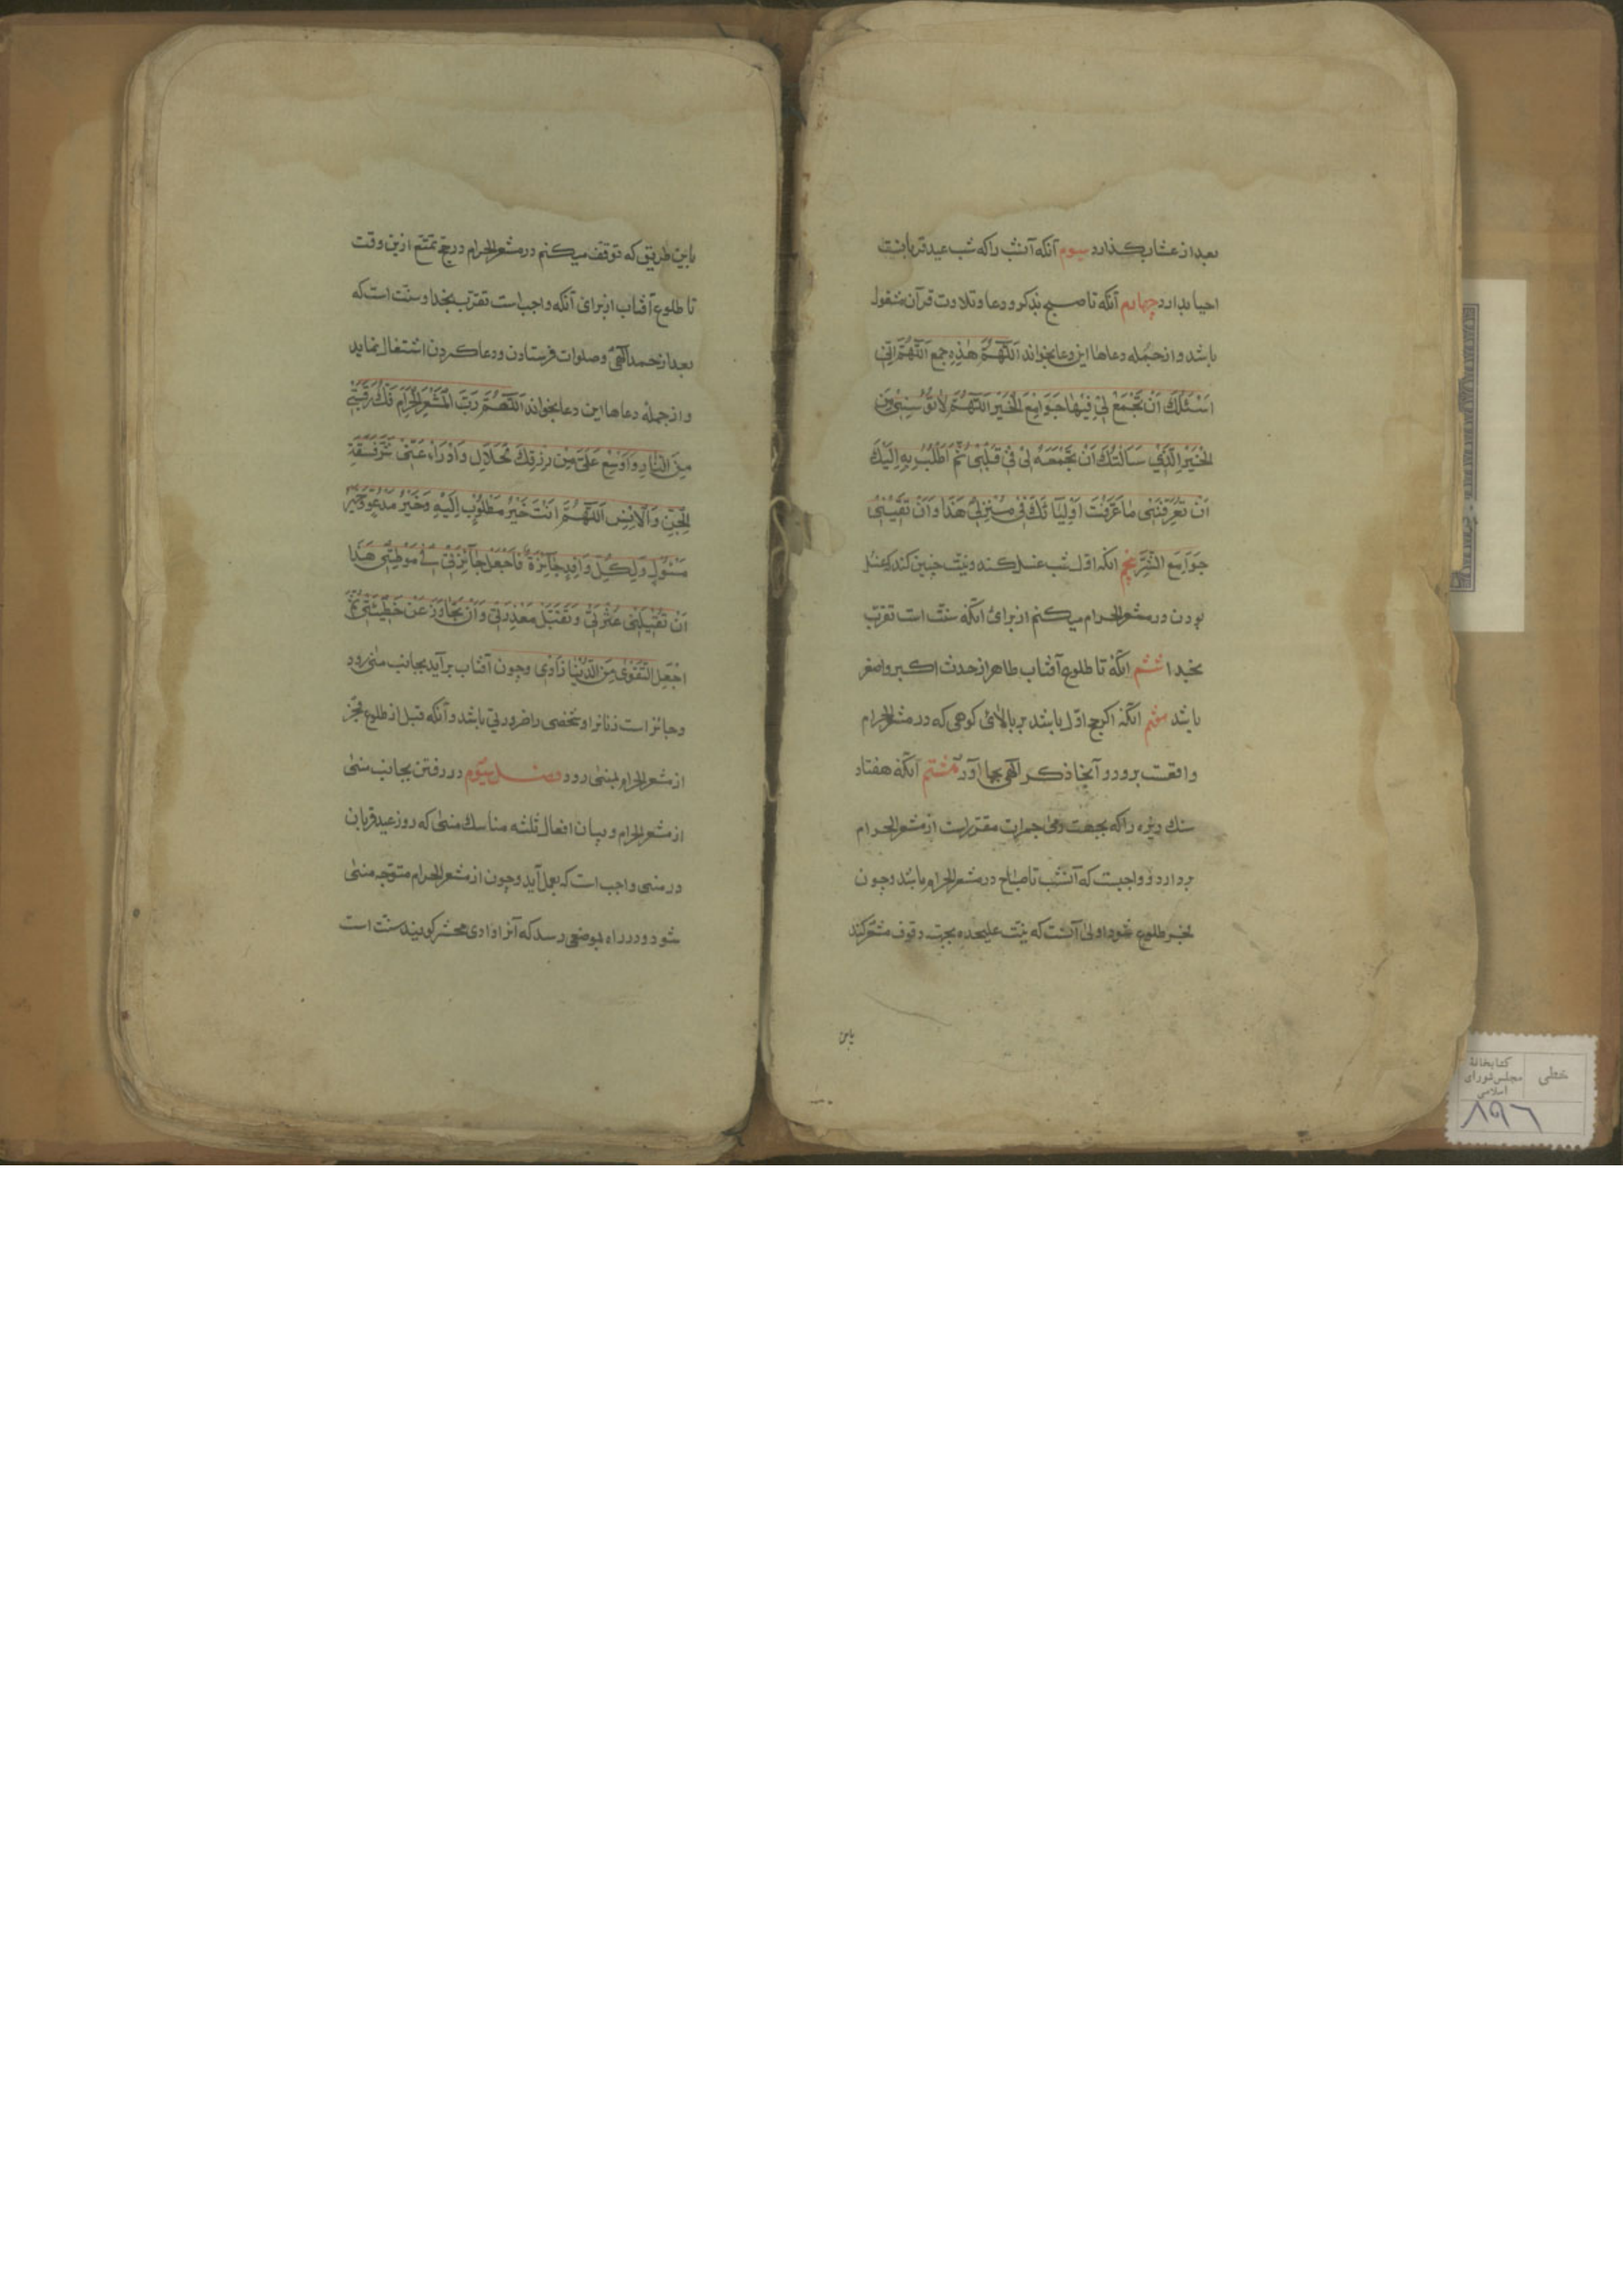 بعد از عشا بگذارد سیوم آنکه آنشب را که شب عید قربانست
احیا بدارد چهارم آنکه تا صبح بذکر و دعا و تلاوت قرآن مشغول
باشد و از جمله دعاها این دعا بخواند اَللّهُمَّ هٰذِهِ جمع اَللّهُمَّ اِنّی
اَسْئَلُكَ اَنْ تَجْمَعَ لی فِیهَا جَوَامِعَ الْخَیْرِ اَللّهُمَّ لا تُؤْیِسْنی مِنَ
الْخَیْرِ الَّذی سَاَلْتُكَ اَنْ تَجْمَعَهُ لی فی قَلْبی ثُمَّ اَطْلُبُ بِهِ اِلَیْكَ
اَنْ تُعَرِّفَنی مَا عَرَّفْتَ اَوْلِیَائَكَ فی مَنْزِلی هَذَا وَاَنْ تَقِیَنی
جَوَامِعَ الشَّرِّ پنجم آنکه اوّل شب غسل کند و نیت چنین کند که غسل
بودن در مشعر الحرام میکنم از برای آنکه سنّت است تقرّب
بخدا ششم آنکه تا طلوع آفتاب طاهر از حدث اکبر و اصغر
باشد هفتم آنکه اگر حج اوّل باشد بر بالای کوهی که در مشعر الحرام
واقعست برود و آنجا ذکر الهی بجا آورد هشتم آنکه هفتاد
سنك ریزه را که بجهت رمی جمرات مقرّر است از مشعر الحرام
بردارد و واجبست که آنشب تا صباح در مشعر الحرام باشد و چون
فجر طلوع شود اولی آنست که نیّت علیحده بجهت وقوف مشعر کند
باین
باین طریق که توقف میکنم در مشعر الحرام در حج تمتّع ازین وقت
تا طلوع آفتاب از برای آنکه واجب است تقرّب بخدا و سنّت است که
بعد از حمد الهی و صلوات فرستادن و دعا کردن اشتغال نماید
و از جمله دعاها این دعا بخواند اَللّهُمَّ رَبَّ الْمَشْعَرِ الْحَرَامِ فُكَّ رَقَبَتی
مِنَ النَّارِ وَاَوْسِعْ عَلَیَّ مِنْ رِزْقِكَ الْحَلَالِ وَادْرَاْ عَنّی شَرَّ فَسَقَةِ
الْجِنِّ وَالْاِنْسِ اَللّهُمَّ اَنْتَ خَیْرُ مَطْلُوْبٍ اِلَیْهِ وَخَیْرُ مَدْعُوٍّ وَخَیْرُ
مَسْئُولٍ وَلِكُلِّ وَافِدٍ جَائِزَةٌ فَاجْعَلْ جَائِزَتی فی مَوْطِنی هَذَا
اَنْ تُقِیلَنی عَثْرَتی وَتَقْبَلَ مَعْذِرَتی وَاَنْ تَجَاوَزَ عَنْ خَطِیْئَتی ثُمَّ
اجْعَلِ التَّقْوٰی مِنَ الدُّنْیَا زَادی و چون آفتاب برآید بجانب منی رود
و جائز است زنانرا و شخصی را ضرورتی باشد و آنکه قبل از طلوع فجر
از مشعر الحرام بمنی رود فصل سیوم در رفتن بجانب منی
از مشعر الحرام و بیان افعال ثلثه مناسك منی که روز عید قربان
در منی واجب است که بعمل آید و چون از مشعر الحرام متوجّه منی
شود و در راه بموضعی رسد که آنرا وادی محسّر گویند سنّت است
خطی
کتابخانهٔ
مجلس شورای
اسلامی
۸۹۶